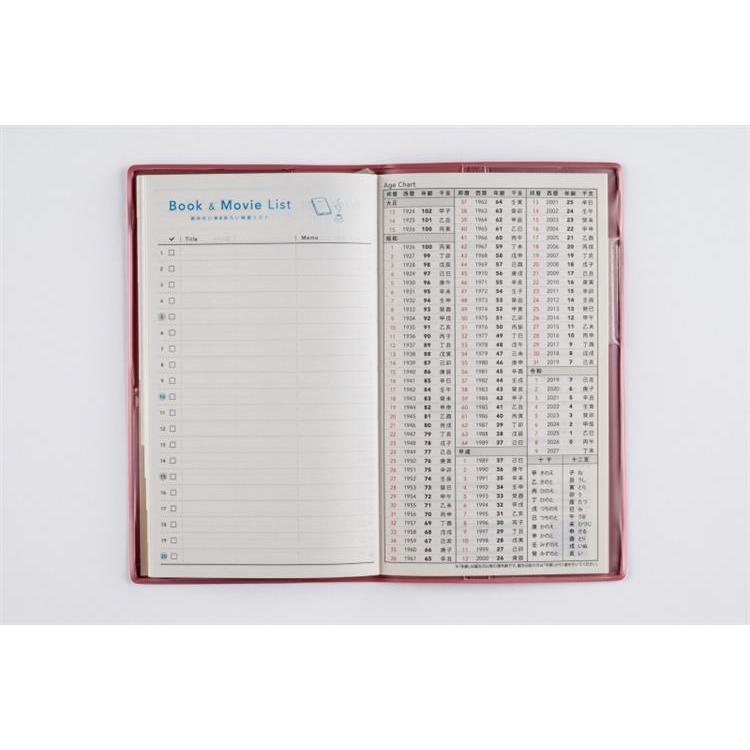 Book & Movie List
読みたい本&見たい映画リスト
✓ Title Memo
1
2
3
4
5
6
7
8
9
10
11
12
13
14
15
16
17
18
19
20
Age Chart
邦暦 西暦 年齢 干支
大正
13 1924 102 甲子
14 1925 101 乙丑
15 1926 100 丙寅
昭和
1 1926 100 丙寅
2 1927 99 丁卯
3 1928 98 戊辰
4 1929 97 己巳
5 1930 96 庚午
6 1931 95 辛未
7 1932 94 壬申
8 1933 93 癸酉
9 1934 92 甲戌
10 1935 91 乙亥
11 1936 90 丙子
12 1937 89 丁丑
13 1938 88 戊寅
14 1939 87 己卯
15 1940 86 庚辰
16 1941 85 辛巳
17 1942 84 壬午
18 1943 83 癸未
19 1944 82 甲申
20 1945 81 乙酉
21 1946 80 丙戌
22 1947 79 丁亥
23 1948 78 戊子
24 1949 77 己丑
25 1950 76 庚寅
26 1951 75 辛卯
27 1952 74 壬辰
28 1953 73 癸巳
29 1954 72 甲午
30 1955 71 乙未
31 1956 70 丙申
32 1957 69 丁酉
33 1958 68 戊戌
34 1959 67 己亥
35 1960 66 庚子
36 1961 65 辛丑
邦暦 西暦 年齢 干支
37 1962 64 壬寅
38 1963 63 癸卯
39 1964 62 甲辰
40 1965 61 乙巳
41 1966 60 丙午
42 1967 59 丁未
43 1968 58 戊申
44 1969 57 己酉
45 1970 56 庚戌
46 1971 55 辛亥
47 1972 54 壬子
48 1973 53 癸丑
49 1974 52 甲寅
50 1975 51 乙卯
51 1976 50 丙辰
52 1977 49 丁巳
53 1978 48 戊午
54 1979 47 己未
55 1980 46 庚申
56 1981 45 辛酉
57 1982 44 壬戌
58 1983 43 癸亥
59 1984 42 甲子
60 1985 41 乙丑
61 1986 40 丙寅
62 1987 39 丁卯
63 1988 38 戊辰
64 1989 37 己巳
平成
1 1989 37 己巳
2 1990 36 庚午
3 1991 35 辛未
4 1992 34 壬申
5 1993 33 癸酉
6 1994 32 甲戌
7 1995 31 乙亥
8 1996 30 丙子
9 1997 29 丁丑
10 1998 28 戊寅
11 1999 27 己卯
12 2000 26 庚辰
邦暦 西暦 年齢 干支
13 2001 25 辛巳
14 2002 24 壬午
15 2003 23 癸未
16 2004 22 甲申
17 2005 21 乙酉
18 2006 20 丙戌
19 2007 19 丁亥
20 2008 18 戊子
21 2009 17 己丑
22 2010 16 庚寅
23 2011 15 辛卯
24 2012 14 壬辰
25 2013 13 癸巳
26 2014 12 甲午
27 2015 11 乙未
28 2016 10 丙申
29 2017 9 丁酉
30 2018 8 戊戌
31 2019 7 己亥
令和
1 2019 7 己亥
2 2020 6 庚子
3 2021 5 辛丑
4 2022 4 壬寅
5 2023 3 癸卯
6 2024 2 甲辰
7 2025 1 乙巳
8 2026 0 丙午
9 2027 丁未
十干 十二支
甲 きのえ
乙 きのと
丙 ひのえ
丁 ひのと
戊 つちのえ
己 つちのと
庚 かのえ
辛 かのと
壬 みずのえ
癸 みずのと
子 ね
丑 うし
寅 とら
卯 う
辰 たつ
巳 み
午 うま
未 ひつじ
申 さる
酉 とり
戌 いぬ
亥 い